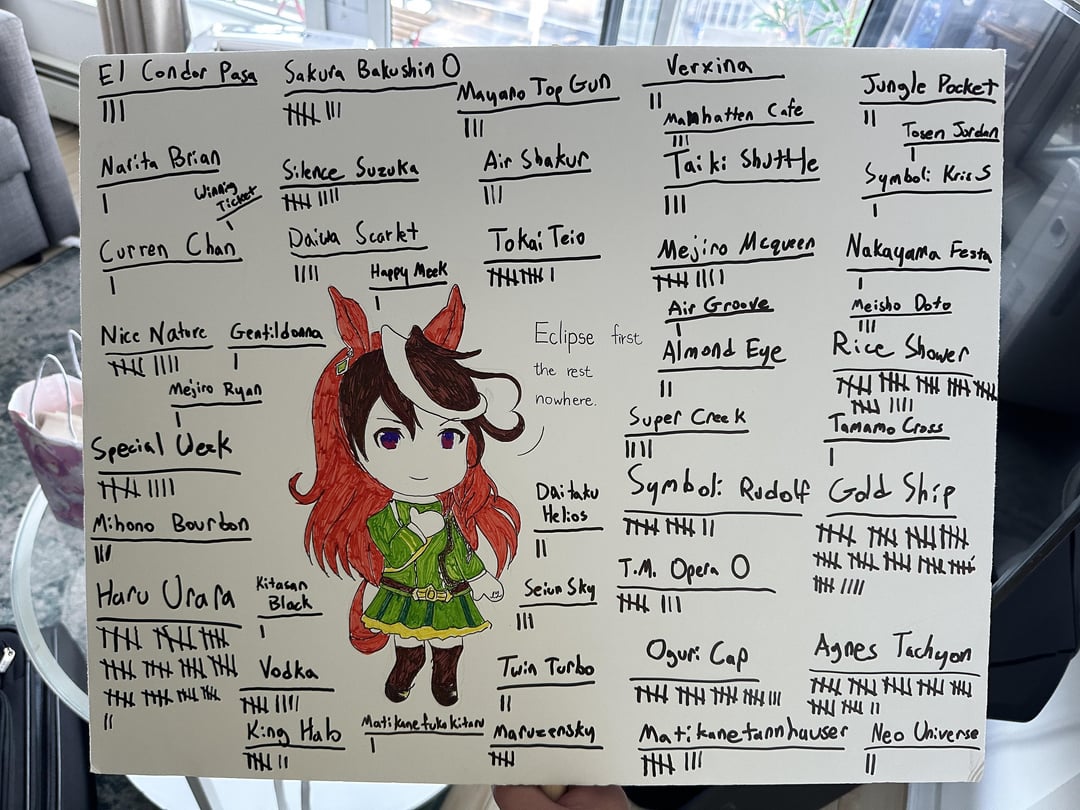 El Condor Pasa
Sakura Bakushin O
Mayano Top Gun
Verxina
Manhatten Cafe
Jungle Pocket
Tosen Jordan
Narita Brian
Winnig
Ticket
Silence Suzuka
Air Shakur
Taiki Shuttle
Symboli Kris S
Curren Chan
Daiwa Scarlet
Happy Meek
Tokai Teio
Mejiro Mcqueen
Nakayama Festa
Air Groove
Meisho Doto
Nice Nature
Gentildonna
Eclipse first
the rest
nowhere.
Almond Eye
Rice Shower
Mejiro Ryan
Special Week
Super Creek
Tamamo Cross
Mihono Bourbon
Daitaku
Helios
Symboli Rudolf
Gold Ship
Haru Urara
Kitasan
Black
Seiun Sky
T.M. Opera O
Vodka
Twin Turbo
Oguri Cap
Agnes Tachyon
King Halo
Matikanefukukitaru
Maruzensky
Matikanetannhauser
Neo Universe